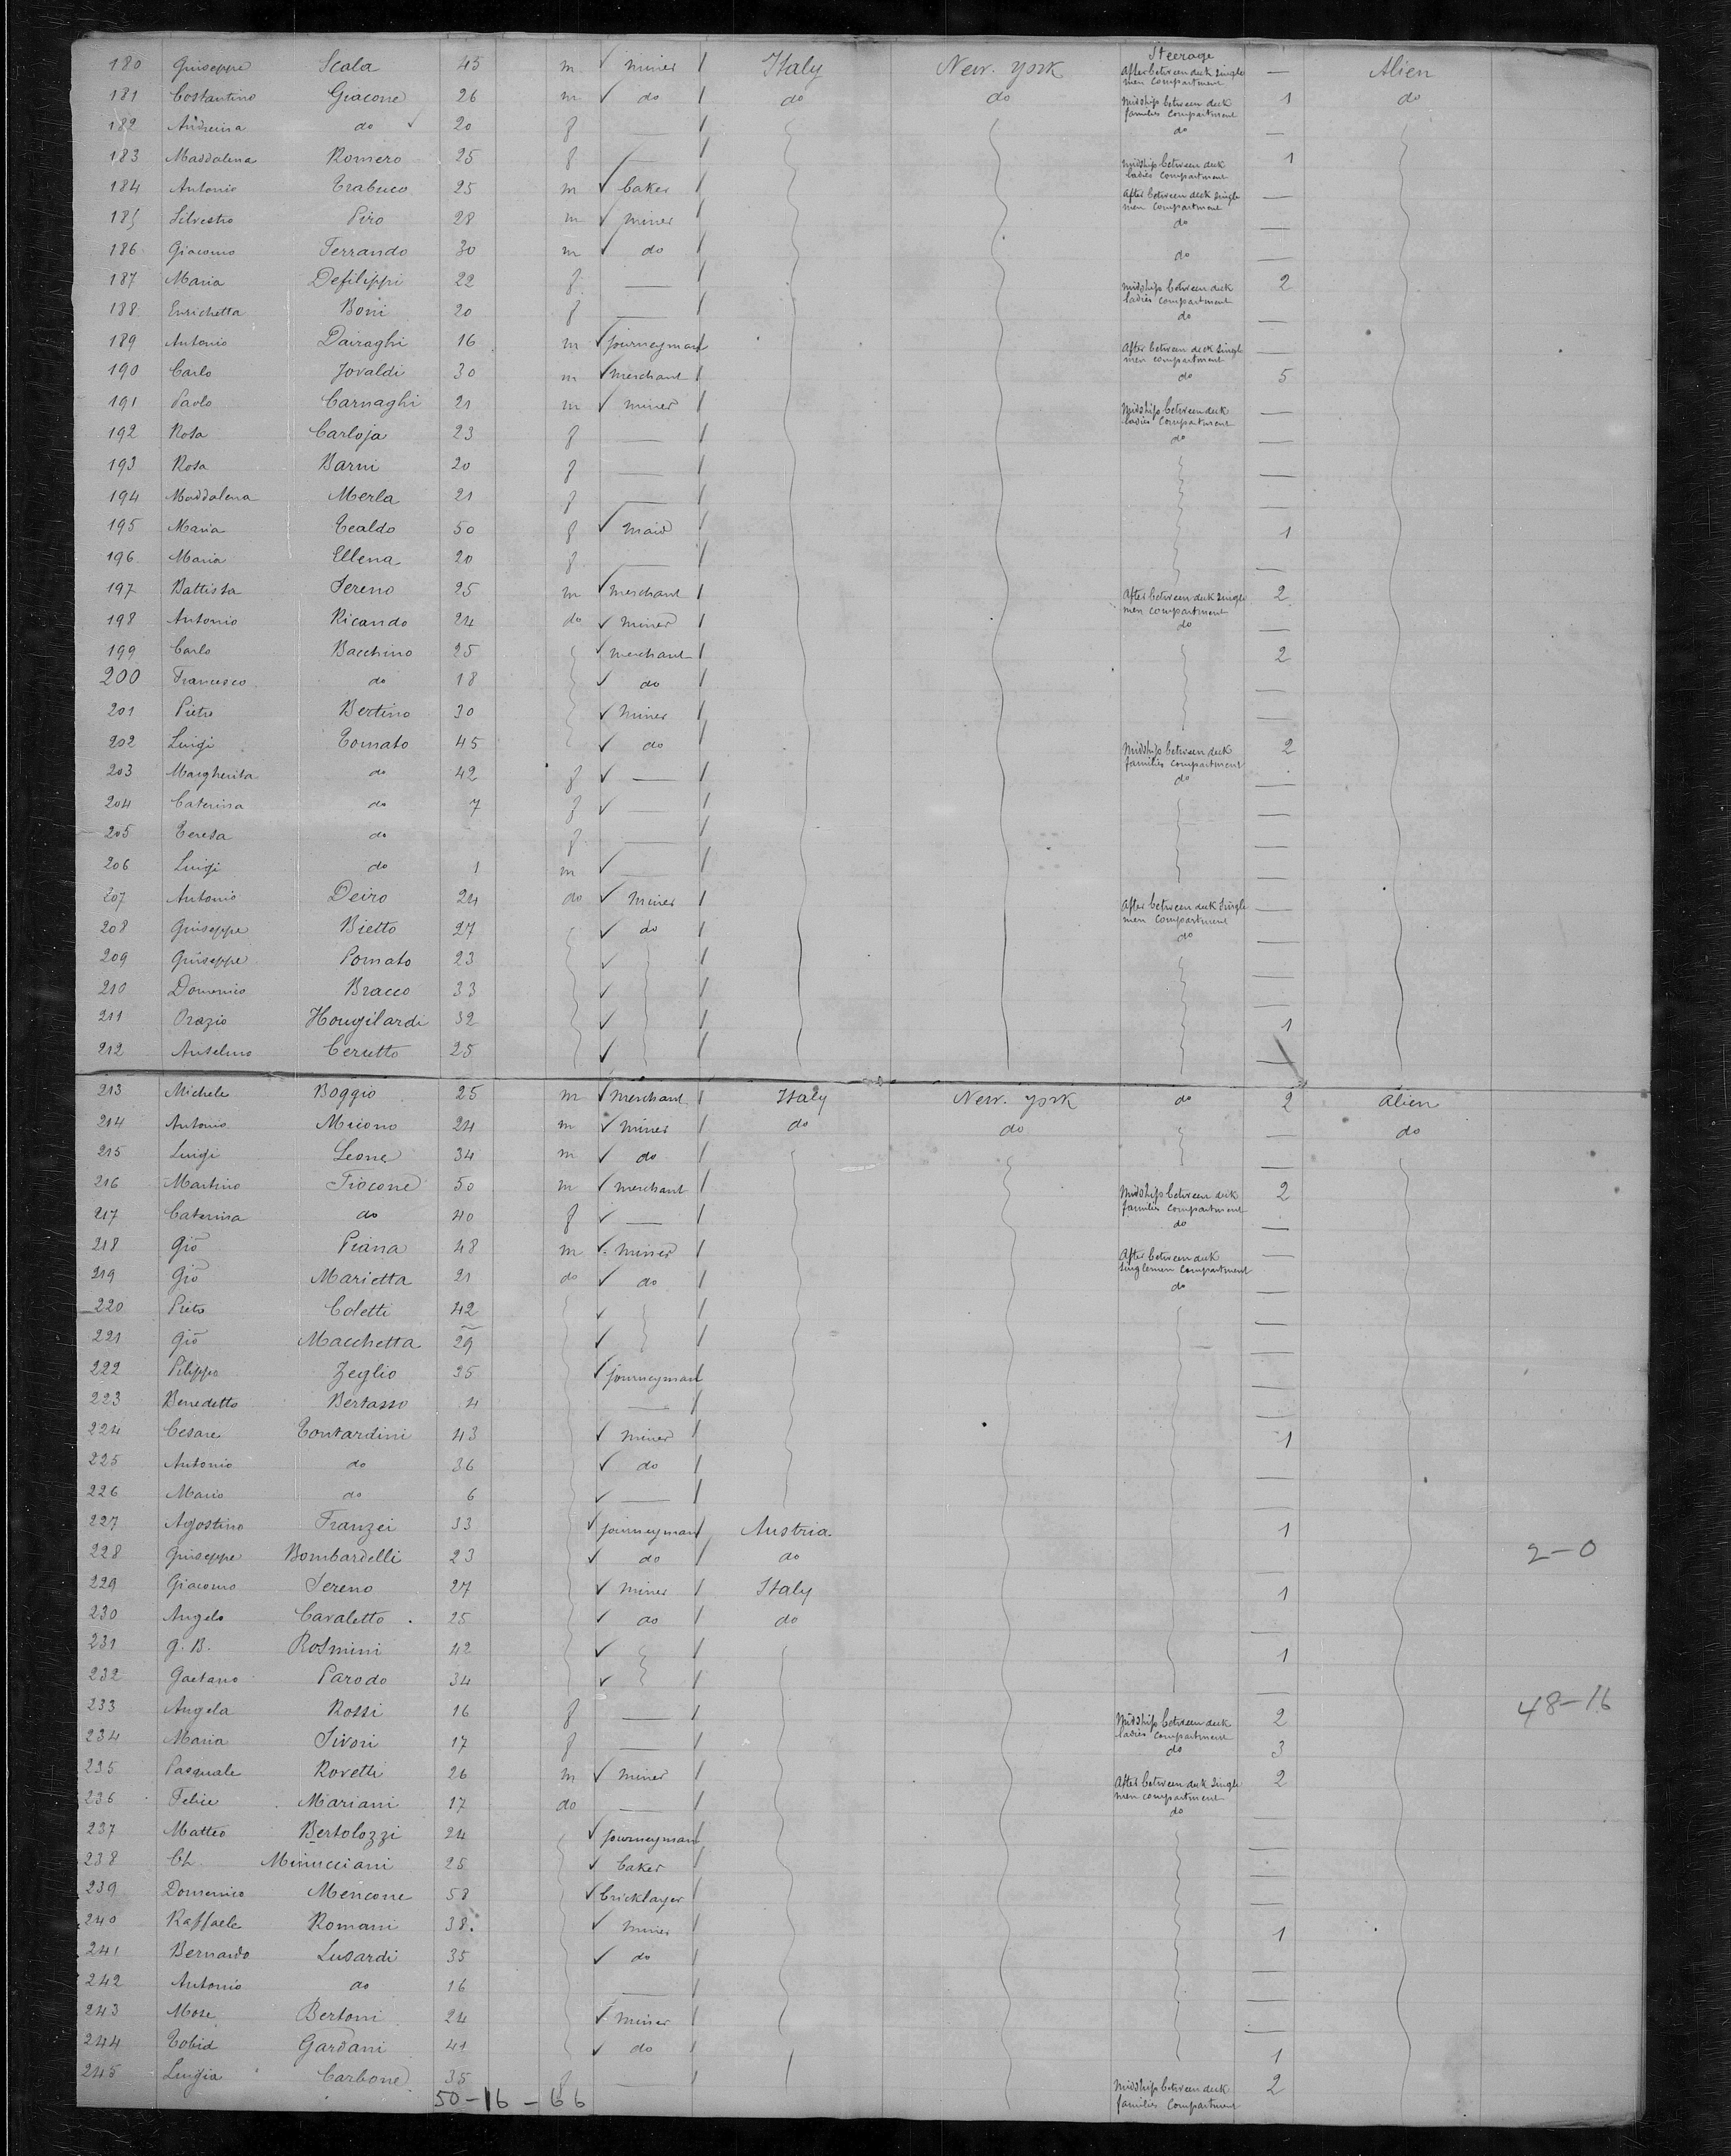 Steerage
180 Giuseppe Scala 45 m ✓ miner / Italy New. York After between deck single men compartment — Alien
181 Costantino Giacone 26 m ✓ do / do do Midship between deck families compartment 1 do
182 Andreina do ✓ 20 f / do —
183 Maddalena Romero 25 f — / Midship between deck ladies compartment 1
184 Antonio Trabuco 25 m ✓ baker / After between deck single men compartment —
185 Silvestro Piro 28 m ✓ miner / do —
186 Giacomo Ferrando 30 m ✓ do / do —
187 Maria Defilippi 22 f — / Midship between deck ladies compartment 2
188 Enrichetta Boni 20 f — / do —
189 Antonio Dairaghi 16 m ✓ journeyman / After between deck single men compartment —
190 Carlo Jovaldi 30 m ✓ merchant / do 5
191 Paolo Carnaghi 21 m ✓ miner / Midship between deck ladies compartment —
192 Rosa Carloja 23 f — / do —
193 Rosa Barni 20 f — / —
194 Maddalena Merla 21 f — / —
195 Maria Tealdo 50 f ✓ maid / 1
196 Maria Ellena 20 f — / —
197 Battista Sereno 25 m ✓ merchant / After between deck single men compartment 2
198 Antonio Ricando 24 do ✓ miner / do —
199 Carlo Bacchino 25 ✓ merchant / 2
200 Francesco do 18 ✓ do / —
201 Pietro Bertino 30 ✓ miner / —
202 Luigi Tomato 45 ✓ do / Midship between deck families compartment 2
203 Margherita do 42 f ✓ — / do —
204 Caterina do 7 f ✓ — / —
205 Teresa do f — / —
206 Luigi do 1 m ✓ — / —
207 Antonio Deiro 24 do ✓ miner / After between deck single men compartment —
208 Giuseppe Bietto 27 ✓ do / do —
209 Giuseppe Pomato 23 ✓ / —
210 Domenico Bracco 33 ✓ / —
211 Orazio Hougilardi 32 ✓ / 1
212 Anselmo Cerutto 25 ✓ / —
213 Michele Boggio 25 m ✓ merchant / Italy New. York do 2 Alien
214 Antonio Micono 24 m ✓ miner / do do — do
215 Luigi Leone 34 m ✓ do / —
216 Martino Fiocone 50 m ✓ merchant / Midship between deck families compartment 2
217 Caterina do 40 f ✓ — / do —
218 Gio Piana 48 m ✓ miner / After between deck singlemen compartment —
219 Gio Marietta 21 do ✓ do / do —
220 Pietro Coletti 42 ✓ / —
221 Gio Macchetta 29 ✓ / —
222 Filippo Zeglio 35 ✓ journeyman / —
223 Benedetto Bertasso 4 — / —
224 Cesare Contardini 43 ✓ miner / 1
225 Antonio do 36 ✓ do / —
226 Mario do 6 ✓ — / —
227 Agostino Franzei 33 ✓ journeyman / Austria 1
228 Giuseppe Bombardelli 23 ✓ do / do — 2-0
229 Giacomo Sereno 27 ✓ miner / Italy 1
230 Angelo Cavaletto 25 ✓ do / do —
231 g. B. Rosmini 42 ✓ / 1
232 Gaetano Parodo 34 ✓ / —
233 Angela Rossi 16 f — / Midship between deck ladies compartment 2 48-16
234 Maria Sivori 17 f — / do 3
235 Pasquale Rovetti 26 m ✓ miner / After between deck single men compartment 2
236 Felice Mariani 17 do — / do —
237 Matteo Bertolozzi 24 ✓ journeyman / —
238 Ch. Minucciani 25 ✓ baker / —
239 Domenico Mencone 58 ✓ bricklayer / —
240 Raffaele Romani 38 ✓ miner 1
241 Bernardo Lusardi 35 ✓ do —
242 Antonio do 16 — / —
243 Mose Bertoni 24 ✓ miner / —
244 Tobia Gardani 41 ✓ do / 1
245 Luigia Carbone 35 f — / Midship between deck families compartment 2
50-16-66